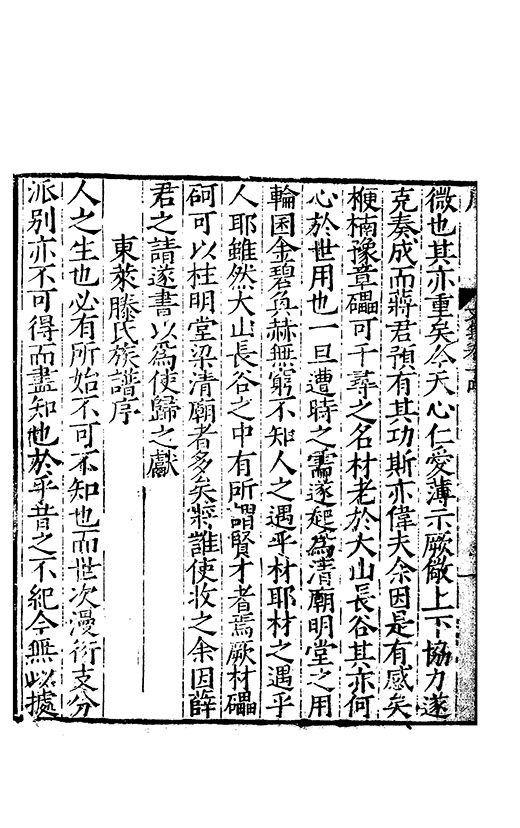 微也其亦重矣今天心仁愛薄示厥儆上下協力遂
克奏成而蔣君預有其功斯亦偉夫余因是有感矣
楩楠豫章礧可千尋之名材老於大山長谷其亦何
心於世用也一旦遭時之需遂起為清廟明堂之用
輪囷金碧奐赫無窮不知人之遇乎材耶材之遇乎
人耶雖然大山長谷之中有所謂賢才者焉厥材礧
砢可以柱明堂梁清廟者多矣將誰使收之余因薛
君之請遂書以為使歸之獻
東萊滕氏族譜序
人之生也必有所始不可不知也而世次漫衍支分
派別亦不可得而盡知也於乎昔之不紀今無以據